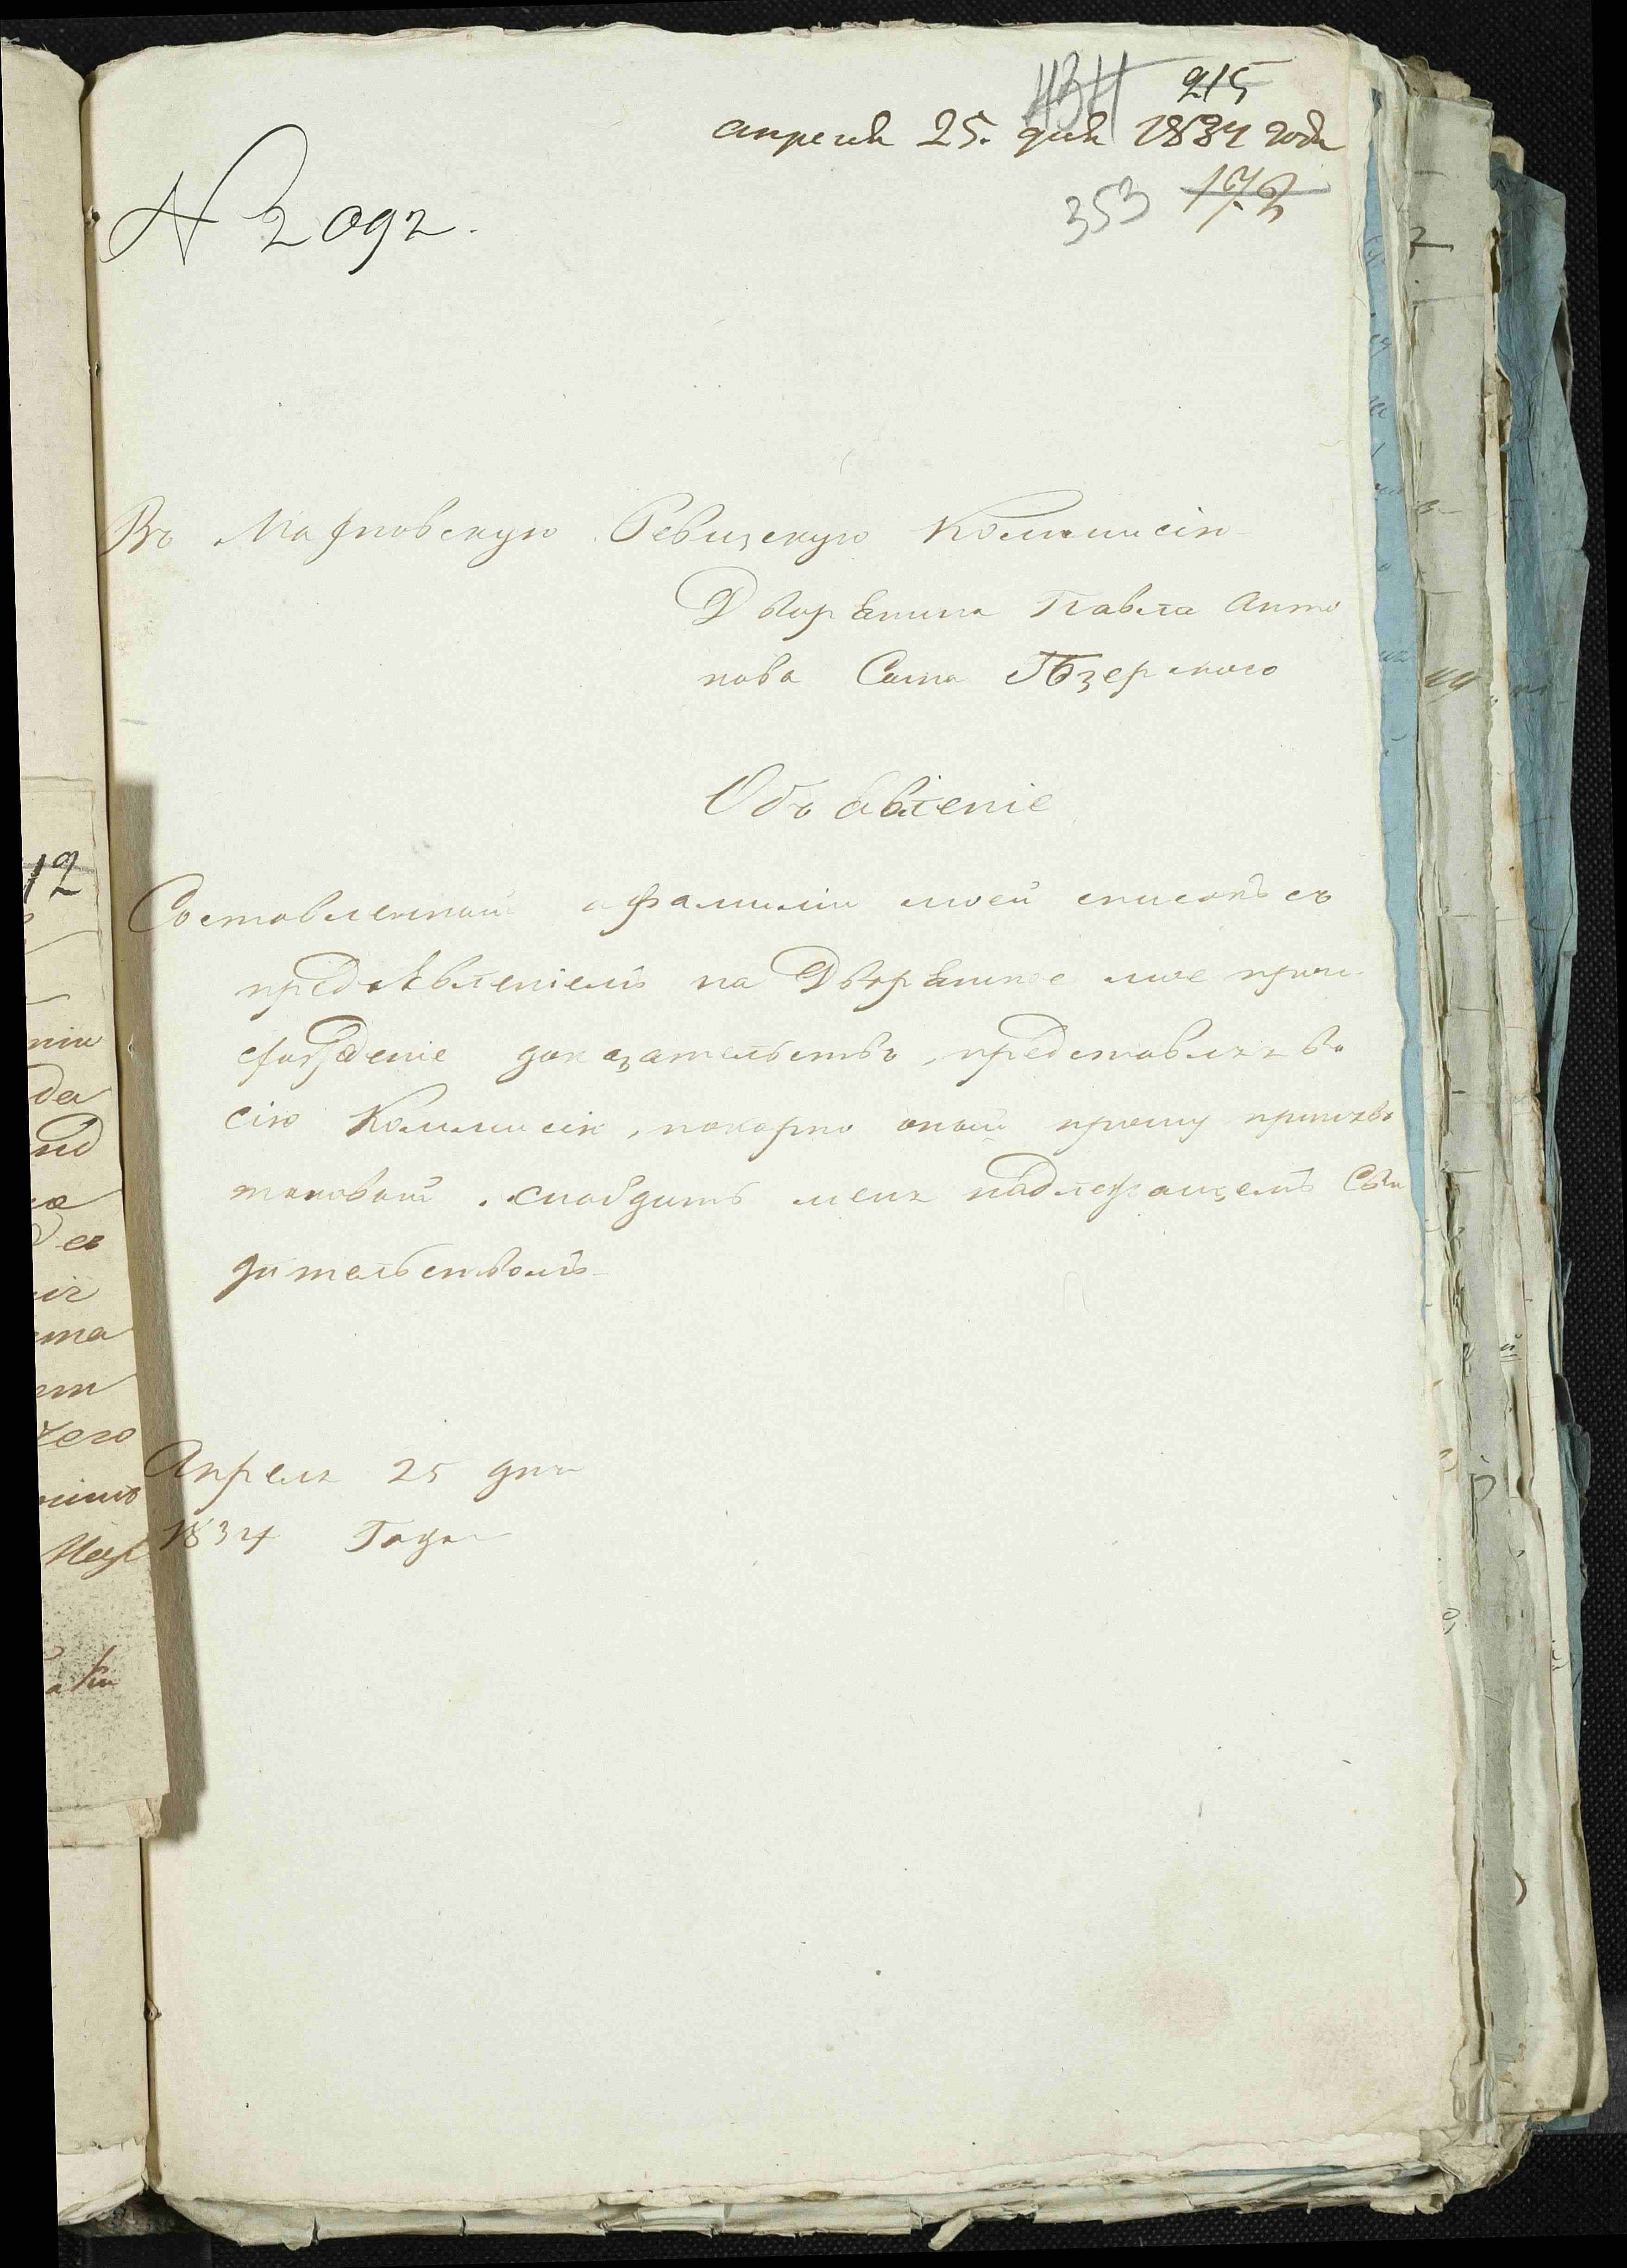 434 215
апреля 25. дня 1834 года
353 172
N 2092.
Въ Махновскую Ревизскую Коммисію
Дворянина Павла Анто
нова Сына
Объявленіе
Составленный о фамиліи моей списокъ съ
предъявленіемъ на Дворянское мое проис
хожденіе доказательствъ, представляя въ
сію Коммисію, покорно оной прошу принявъ
таковой, снабдить меня надлежащемъ Сви
дительствомъ
Апреля 25 дня
1834 Года